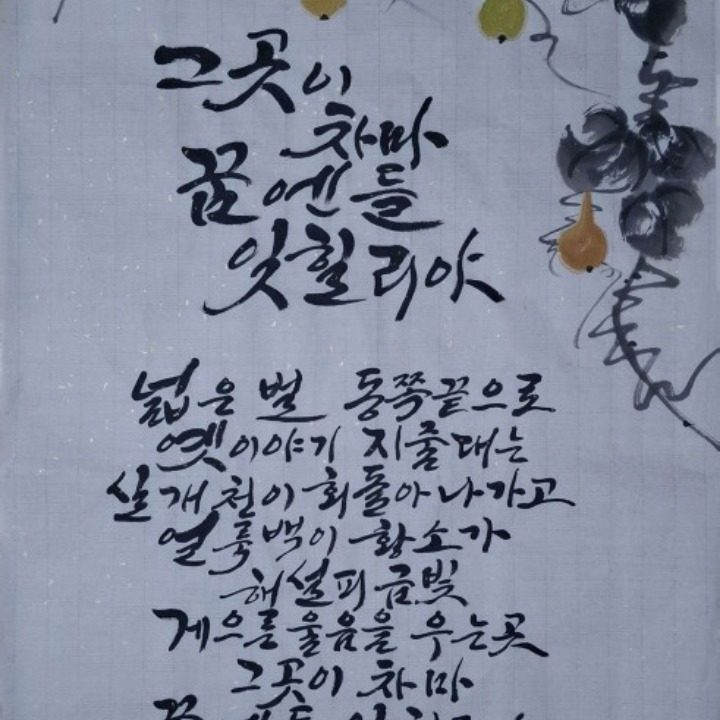 그곳이
차마
꿈엔들
잊힐리야
넓은 벌 동쪽끝으로
옛이야기 지줄대는
실개천이 휘돌아나가고
얼룩백이 황소가
해설피 금빛
게으른 울음을 우는곳
그곳이 차마